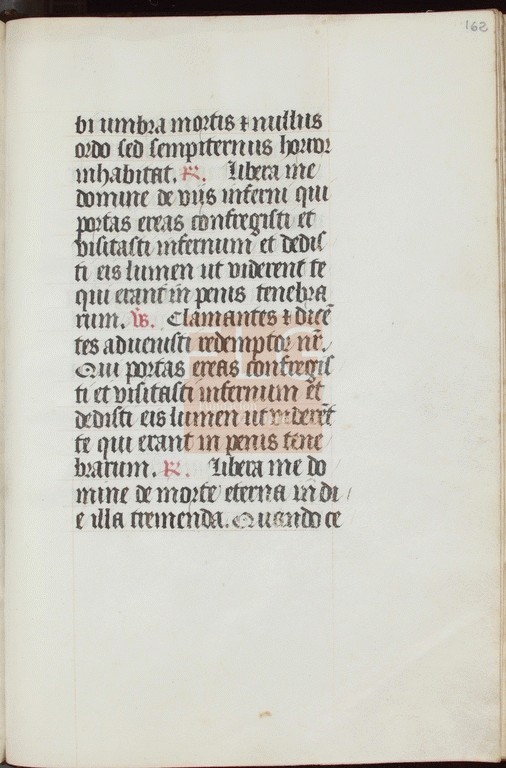 162
bi umbra mortis ⁊ nullus
ordo sed sempiternus horror
inhabitat. R. Libera me
domine de viis inferni qui
portas ereas confregisti et
visitasti infernum et dedis
ti eis lumen ut viderent te
qui erant in penis tenebra
rum. V̄s. Clamantes ⁊ dicē
tes advenisti redemptor nr̄.
Qui portas ereas confregis
ti et visitasti infernum et
dedisti eis lumen ut viderēt
te qui erant in penis tene
brarum. R. Libera me do
mine de morte eterna in di
e illa tremenda. Quando ce